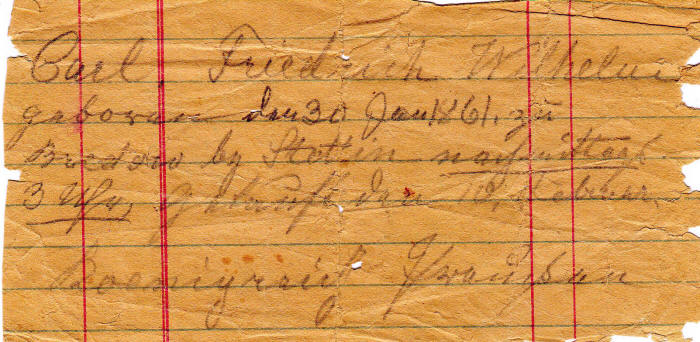 Carl Friedrich Wilhelm
geboren den 30 Jan 1861. zu
Bredow by Stettin nachmittag
3 Uhr, getauft den 10. Februar.
Koenigreich Preußen